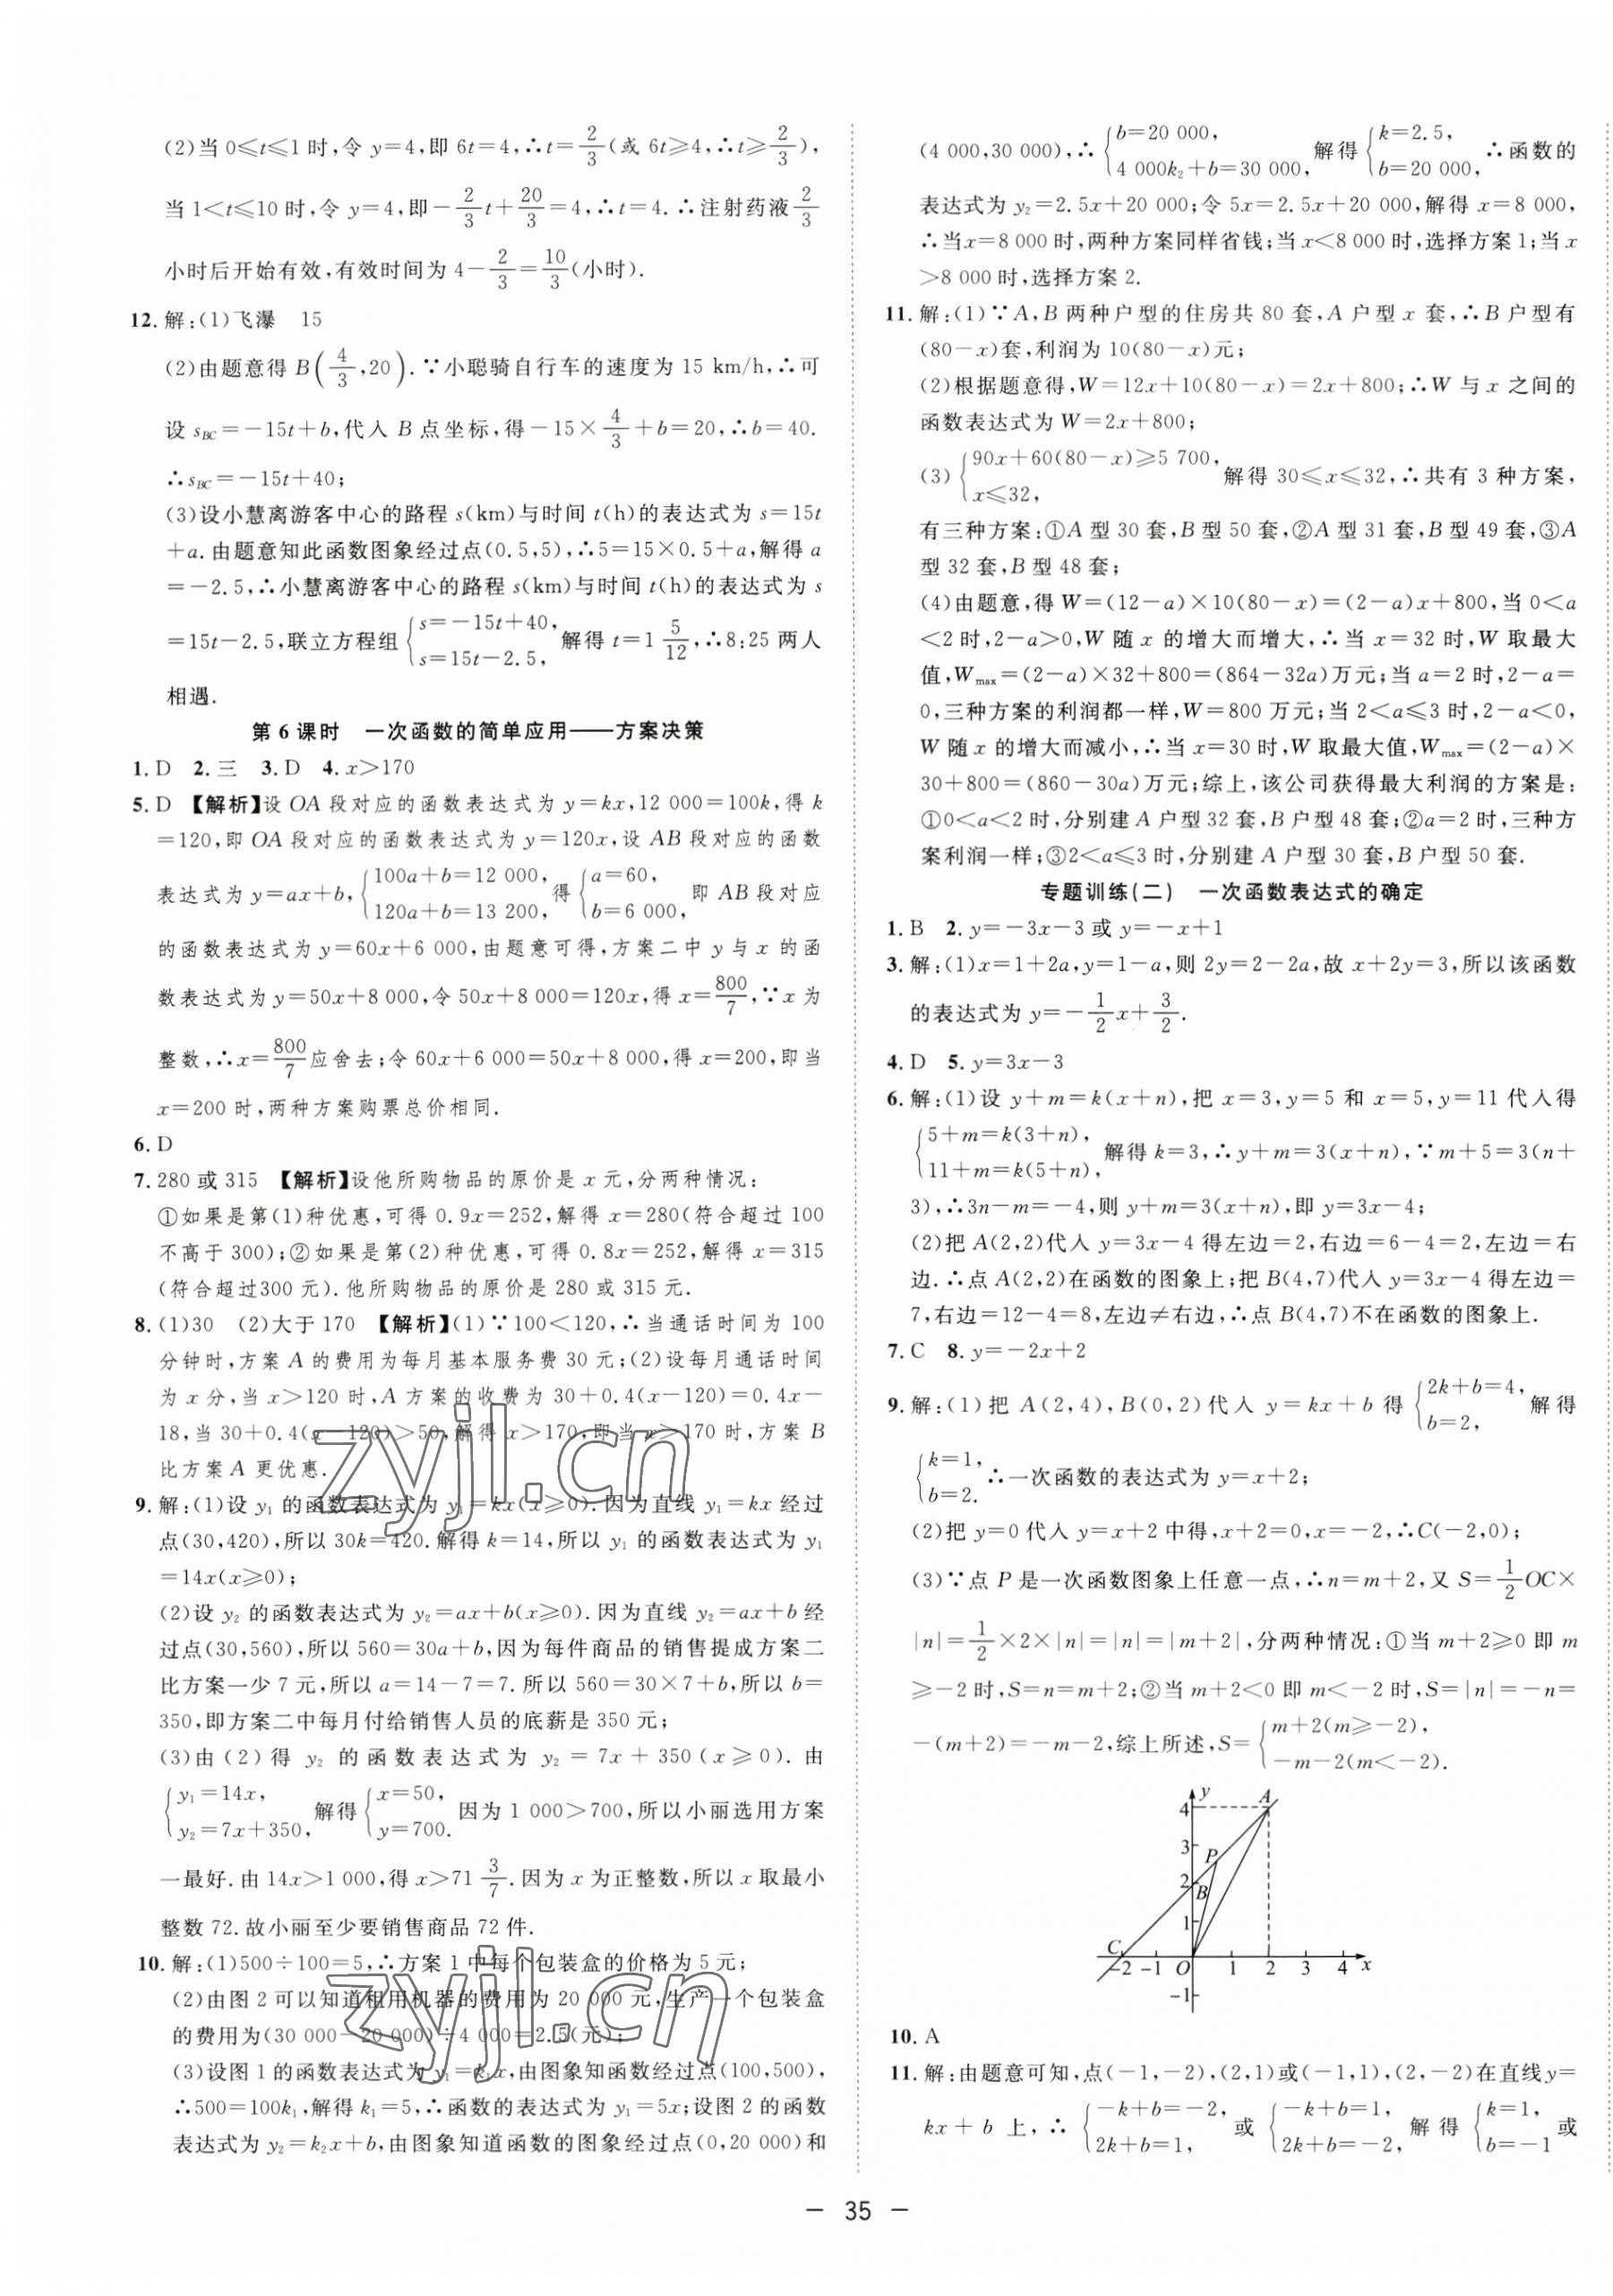 (2)当 0≤t≤1 时,令 y=4,即 6t=4,∴t=2/3(或 6t≥4,∴t≥2/3),
当 1<t≤10 时,令 y=4,即-2/3t+20/3=4,∴t=4.∴注射药液2/3
小时后开始有效,有效时间为 4-2/3=10/3(小时).
12.解:(1)飞瀑 15
(2)由题意得 B(4/3,20).∵小聪骑自行车的速度为 15 km/h,∴可
设 s_BC=-15t+b,代入 B 点坐标,得-15×4/3+b=20,∴b=40.
∴s_BC=-15t+40;
(3)设小慧离游客中心的路程 s(km)与时间 t(h)的表达式为 s=15t
+a.由题意知此函数图象经过点(0.5,5),∴5=15×0.5+a,解得 a
=-2.5,∴小慧离游客中心的路程 s(km)与时间 t(h)的表达式为 s
=15t-2.5,联立方程组{s=-15t+40, s=15t-2.5, 解得 t=1 5/12,∴8:25 两人
相遇.
第 6 课时 一次函数的简单应用——方案决策
1.D 2.三 3.D 4.x>170
5.D 【解析】设 OA 段对应的函数表达式为 y=kx,12 000=100k,得 k
=120,即 OA 段对应的函数表达式为 y=120x,设 AB 段对应的函数
表达式为 y=ax+b,{100a+b=12 000, 120a+b=13 200, 得{a=60, b=6 000, 即 AB 段对应
的函数表达式为 y=60x+6 000,由题意可得,方案二中 y 与 x 的函
数表达式为 y=50x+8 000,令 50x+8 000=120x,得 x=800/7,∵x 为
整数,∴x=800/7应舍去;令 60x+6 000=50x+8 000,得 x=200,即当
x=200 时,两种方案购票总价相同.
6.D
7.280 或 315 【解析】设他所购物品的原价是 x 元,分两种情况:
①如果是第(1)种优惠,可得 0.9x=252,解得 x=280(符合超过 100
不高于 300);②如果是第(2)种优惠,可得 0.8x=252,解得 x=315
(符合超过300 元).他所购物品的原价是 280 或 315 元.
8.(1)30 (2)大于 170 【解析】(1)∵100<120,∴当通话时间为 100
分钟时,方案 A 的费用为每月基本服务费 30 元;(2)设每月通话时间
为 x 分,当 x>120 时,A 方案的收费为 30+0.4(x-120)=0.4x-
18,当 30+0.4(x-120)>50,解得 x>170,即当 x>170 时,方案 B
比方案 A 更优惠.
9.解:(1)设 y₁ 的函数表达式为 y₁=kx(x≥0).因为直线 y₁=kx 经过
点(30,420),所以 30k=420.解得 k=14,所以 y₁ 的函数表达式为 y₁
=14x(x≥0);
(2)设 y₂ 的函数表达式为 y₂=ax+b(x≥0).因为直线 y₂=ax+b 经
过点(30,560),所以 560=30a+b,因为每件商品的销售提成方案二
比方案一少 7 元,所以 a=14-7=7.所以 560=30×7+b,所以 b=
350,即方案二中每月付给销售人员的底薪是 350 元;
(3)由(2)得 y₂ 的函数表达式为 y₂=7x+350(x≥0).由
{y₁=14x, y₂=7x+350, 解得{x=50, y=700. 因为 1 000>700,所以小丽选用方案
一最好.由 14x>1 000,得 x>71 3/7.因为 x 为正整数,所以 x 取最小
整数 72.故小丽至少要销售商品 72 件.
10.解:(1)500÷100=5,∴方案 1 中每个包装盒的价格为 5 元;
(2)由图 2 可以知道租用机器的费用为 20 000 元,生产一个包装盒
的费用为(30 000-20 000)÷4 000=2.5(元);
(3)设图 1 的函数表达式为 y₁=k₁x,由图象知函数经过点(100,500),
∴500=100k₁,解得 k₁=5,∴函数的表达式为 y₁=5x;设图 2 的函数
表达式为 y₂=k₂x+b,由图象知道函数的图象经过点(0,20 000)和
(4 000,30 000),∴{b=20 000, 4 000k₂+b=30 000, 解得{k=2.5, b=20 000, ∴函数的
表达式为 y₂=2.5x+20 000;令 5x=2.5x+20 000,解得 x=8 000,
∴当x=8 000 时,两种方案同样省钱;当 x<8 000 时,选择方案 1;当 x
>8 000 时,选择方案 2.
11.解:(1)∵A,B 两种户型的住房共 80 套,A 户型 x 套,∴B 户型有
(80-x)套,利润为 10(80-x)元;
(2)根据题意得,W=12x+10(80-x)=2x+800;∴W 与 x 之间的
函数表达式为 W=2x+800;
(3){90x+60(80-x)≥5 700, x≤32, 解得 30≤x≤32,∴共有 3 种方案,
有三种方案:①A 型 30 套,B 型 50 套,②A 型 31 套,B 型 49 套,③A
型 32 套,B 型 48 套;
(4)由题意,得 W=(12-a)×10(80-x)=(2-a)x+800,当 0<a
<2 时,2-a>0,W 随 x 的增大而增大,∴当 x=32 时,W 取最大
值,W_max=(2-a)×32+800=(864-32a)万元;当 a=2 时,2-a=
0,三种方案的利润都一样,W=800 万元;当 2<a≤3 时,2-a<0,
W 随 x 的增大而减小,∴当 x=30 时,W 取最大值,W_max=(2-a)×
30+800=(860-30a)万元;综上,该公司获得最大利润的方案是:
①0<a<2 时,分别建 A 户型 32 套,B 户型 48 套;②a=2 时,三种方
案利润一样;③2<a≤3 时,分别建 A 户型 30 套,B 户型 50 套.
专题训练(二) 一次函数表达式的确定
1.B 2.y=-3x-3 或 y=-x+1
3.解:(1)x=1+2a,y=1-a,则 2y=2-2a,故 x+2y=3,所以该函数
的表达式为 y=-1/2x+3/2.
4.D 5.y=3x-3
6.解:(1)设 y+m=k(x+n),把 x=3,y=5 和 x=5,y=11 代入得
{5+m=k(3+n), 11+m=k(5+n), 解得 k=3,∴y+m=3(x+n),∵m+5=3(n+
3),∴3n-m=-4,则 y+m=3(x+n),即 y=3x-4;
(2)把 A(2,2)代入 y=3x-4 得左边=2,右边=6-4=2,左边=右
边.∴点 A(2,2)在函数的图象上;把 B(4,7)代入 y=3x-4 得左边=
7,右边=12-4=8,左边≠右边,∴点 B(4,7)不在函数的图象上.
7.C 8.y=-2x+2
9.解:(1)把 A(2,4),B(0,2)代入 y=kx+b 得{2k+b=4, b=2, 解得
{k=1, b=2. ∴一次函数的表达式为 y=x+2;
(2)把 y=0 代入 y=x+2 中得,x+2=0,x=-2,∴C(-2,0);
(3)∵点 P 是一次函数图象上任意一点,∴n=m+2,又 S=1/2OC×
|n|=1/2×2×|n|=|n|=|m+2|,分两种情况:①当 m+2≥0 即 m
≥-2 时,S=n=m+2;②当 m+2<0 即 m<-2 时,S=|n|=-n=
-(m+2)=-m-2,综上所述,S={m+2(m≥-2), -m-2(m<-2).
y
4 A
3
P
2
B
1
C
-2 -1 O 1 2 3 4 x
-1
10.A
11.解:由题意可知,点(-1,-2),(2,1)或(-1,1),(2,-2)在直线y=
kx+b 上,∴{-k+b=-2, 2k+b=1, 或{-k+b=1, 2k+b=-2, 解得{k=1, b=-1 或
— 35 —
zyjl.cn
zyjl.cn